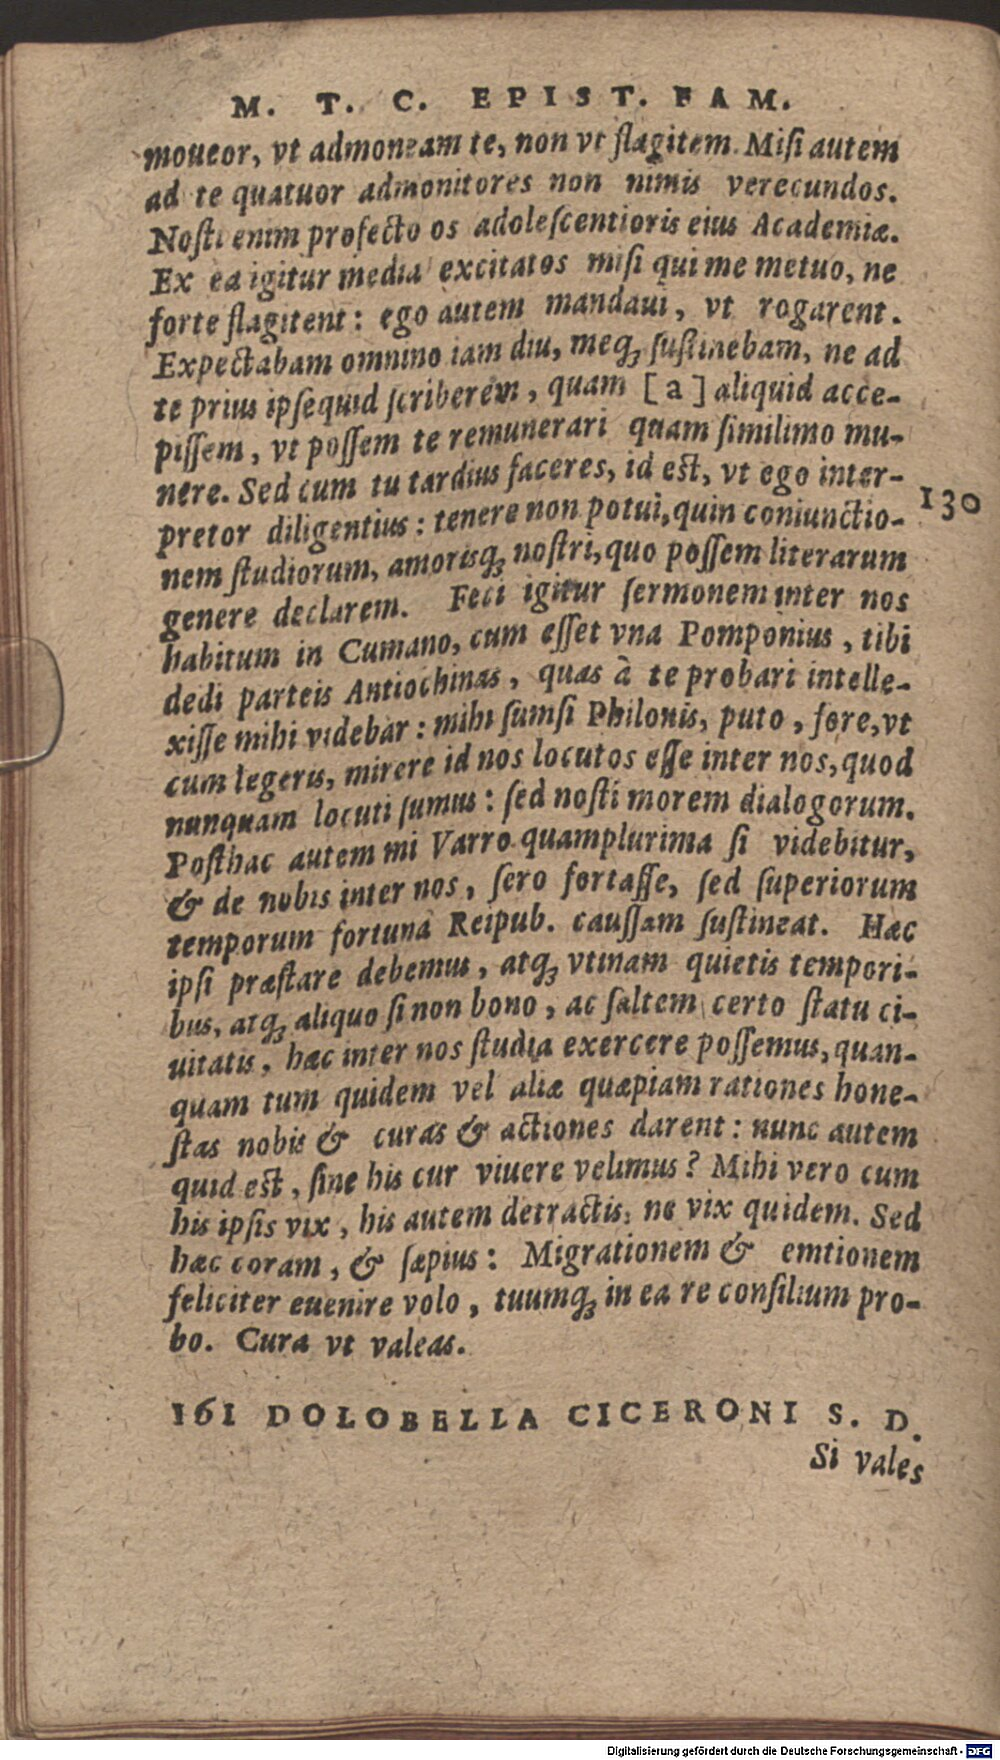 M. T. C. EPIST. FAM.
moueor, vt admoneam te, non vt flagitem. Misi autem
ad te quatuor admonitores non nimis verecundos.
Nosti enim profecto os adolescentioris eius Academiæ.
Ex ea igitur media excitatos misi qui me metuo, ne
forte flagitent: ego autem mandaui, vt rogarent.
Expectabam omnino iam diu, meq; sustinebam, ne ad
te prius ipsequid scriberem, quam [a] aliquid acce-
pissem, vt possem te remunerari quam similimo mu-
nere. Sed cum tu tardius faceres, id est, vt ego inter-
pretor diligentius: tenere non potui, quin coniunctio-
130
nem studiorum, amorisq; nostri, quo possem literarum
genere declarem. Feci igitur sermonem inter nos
habitum in Cumano, cum esset vna Pomponius, tibi
dedi parteis Antiochinas, quas à te probari intelle-
xisse mihi videbar: mihi sumsi Philonis, puto, fore, vt
cum legeris, mirere id nos locutos esse inter nos, quod
nunquam locuti sumus: sed nosti morem dialogorum.
Posthac autem mi Varro quamplurima si videbitur,
& de nobis inter nos, sero fortasse, sed superiorum
temporum fortuna Reipub. caussam sustineat. Hæc
ipsi præstare debemus, atq; vtinam quietis tempori-
bus, atq; aliquo si non bono, ac saltem certo statu ci-
uitatis, hæc inter nos studia exercere possemus, quan-
quam tum quidem vel aliæ quæpiam rationes hone-
stas nobis & curas & actiones darent: nunc autem
quid est, sine his cur viuere velimus? Mihi vero cum
his ipsis vix, his autem detractis, ne vix quidem. Sed
hæc coram, & sæpius: Migrationem & emtionem
feliciter euenire volo, tuumq; in ea re consilium pro-
bo. Cura vt valeas.
161 DOLOBELLA CICERONI S. D.
Si vales
Digitalisierung gefördert durch die Deutsche Forschungsgemeinschaft - DFG